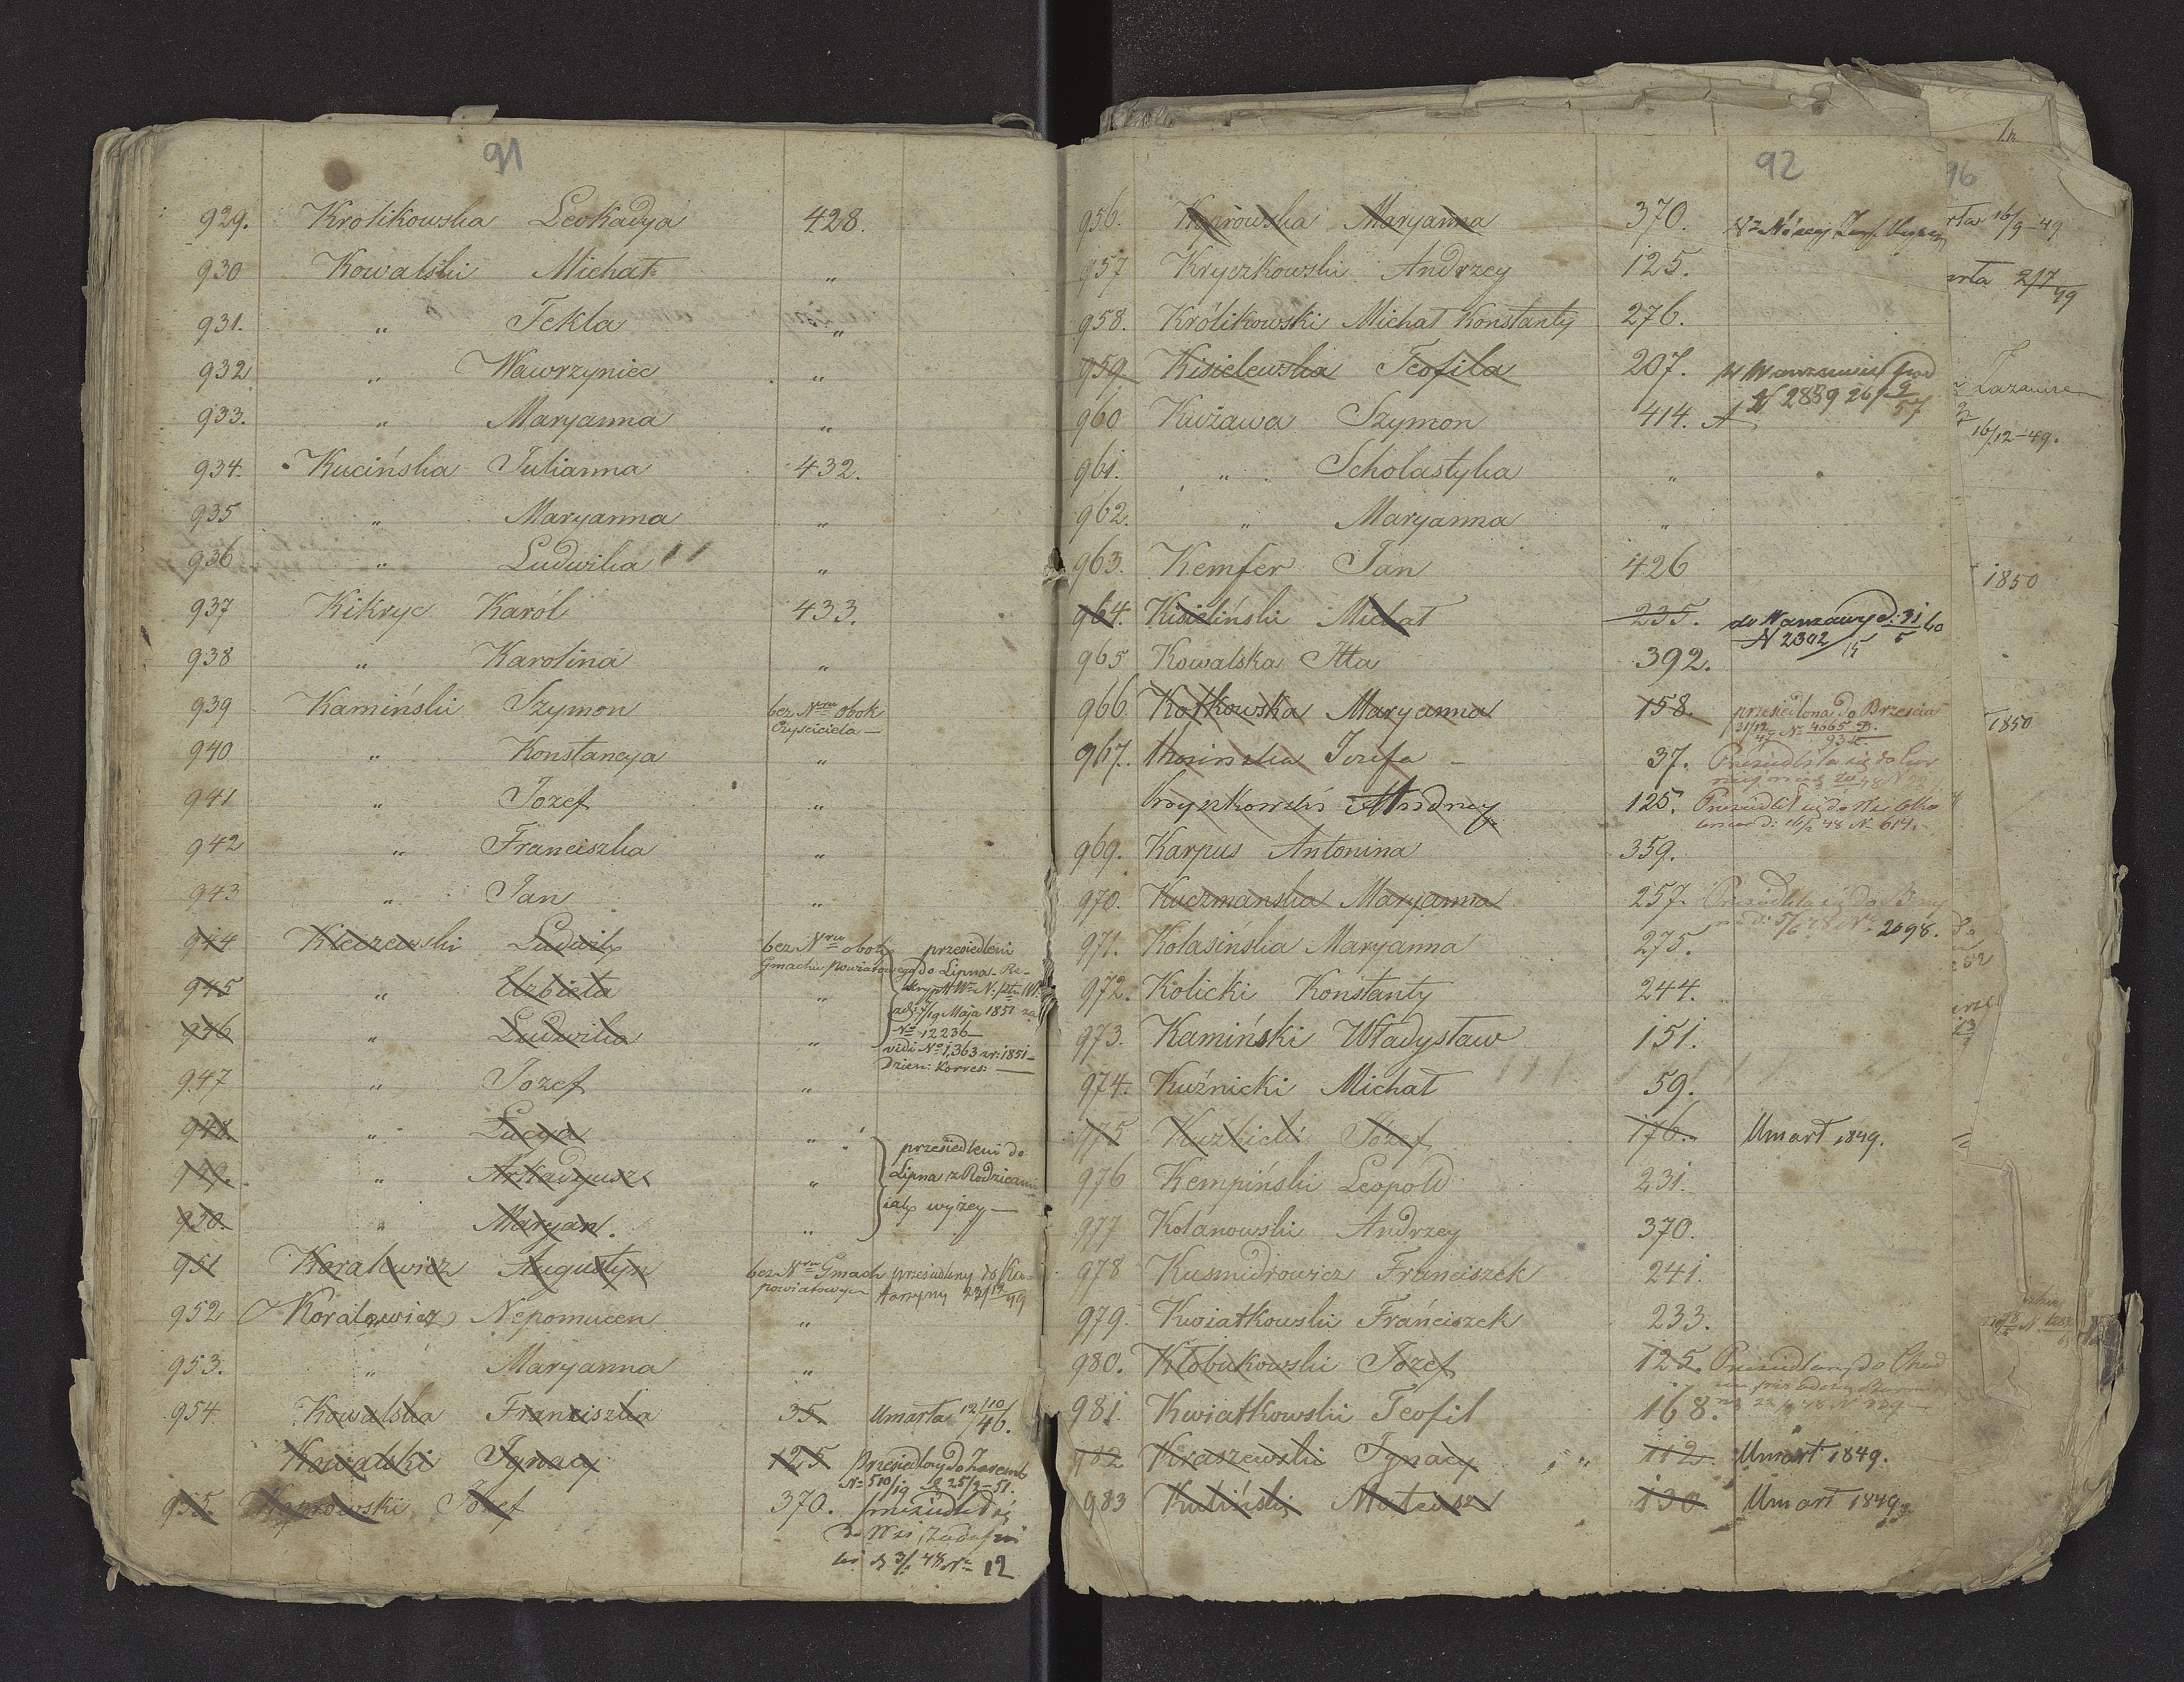 91
929. Krolikowska Leokadya 428.
930 Kowalski Michał „
931. „ Tekla „
932 „ Wawrzyniec „
933. „ Maryanna „
934. Kucińska Julianna 432.
935 „ Maryanna „
936 „ Ludwika „
937 Kikryc Karól 433.
938 „ Karolina „
939 Kamiński Szymon bez Nru obok
Czyściciela —
940 „ Konstancya „
941 „ Jozef „
942 „ Franciszka „
943 „ Jan „
944 Kleczewski Ludwik bez Nru obok przesiedleni
Gmachu powiatowego do Lipna - Re-
945 „ Elzbieta „
7/19 Maja 1851 za
946 „ Ludwika „ No 12236 —
vidi No 1,363 ar: 1851 —
Dzien: Korres: —
947 „ Jozef „
948. „ Lucya „
przesiedleni do
949. „ Arkadyusz „ Lipna z Rodzicami
950. „ Maryan. „ jak wyżey —
951 Koralewicz Augustyn bez Nru Gmach przesiedlony do
powiatowy 49
952 Koralewicz Nepomucen „
953. „ Maryanna „
954 Kowalska Franciszka 35. Umarła 12/10 46.
Kowalski Ignacy 125 Przesiedlony do
No 510/19 d 25/2-51.
955. Koprowski Jozef 370. przesiedlił się
do Wsi
d 3/1 48 No 12
92
956. Koprowska Maryanna 370.
957 Kryczkowski Andrzey 125.
958. Królikowski Michał Konstanty 276.
959. Kisielewska Teofila 207. w Warszawie pod
N 2889 26/9 57
960 Kużawa Szymon 414.
961. „ Scholastyka „
962. „ Maryanna „
963. Kemfer Jan 426
964. Kisieliński Michał 235. do Warszawy d: 31/5 60
N 2302/15
965 Kowalska Itta 392.
966. Kotkowska Maryanna 158. przesiedlona do Brześcia
31/12 47 No 4065 D.
93 K.
967. Józefa — 37. Przesiedliła się do
Andrzey 125. Przesiedlił się do
d: 16/2 48 No 614.
969. Karpus Antonina 359.
970. Kuczmanska Maryanna 257. Przesiedliła się do
d: 5/6 48 No 2098.
971. Kolasińska Maryanna 275.
972. Kolicki Konstanty 244.
973. Kamiński Władysław 151.
974. Kuźnicki Michał 59.
975 Kużnicki Józef 176. Umarł 1849.
976 Kempiński Leopold 231.
977 Kolanowski Andrzey 370.
978 Kusmidrowicz Franciszek 241.
979. Kwiatkowski Franciszek 233.
980. Kłobukowski Jozef 125. Przesiedlony do
981. Kwiatkowski Teofil 168.
982 Kraszewski Ignacy 112. Umarł 1849.
983 Kuliński Mateusz 130 Umarł 1849.
96
16/9-49
2/7 49
16/12-49.
1850
1850